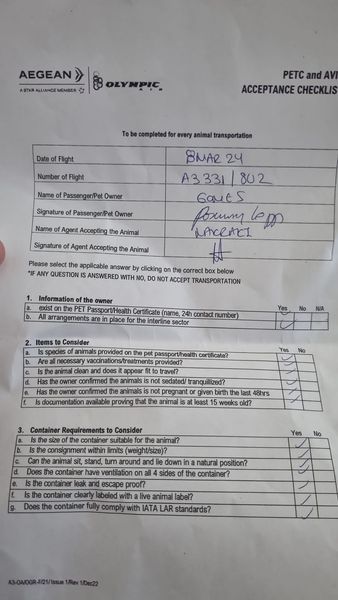 AEGEAN
A STAR ALLIANCE MEMBER
OLYMPIC
AIR
PETC and AVI
ACCEPTANCE CHECKLIS
To be completed for every animal transportation
Date of Flight 8 MAR 24
Number of Flight A3331/802
Name of Passenger/Pet Owner GOMES
Signature of Passenger/Pet Owner
Name of Agent Accepting the Animal
Signature of Agent Accepting the Animal
Please select the applicable answer by clicking on the correct box below
*IF ANY QUESTION IS ANSWERED WITH NO, DO NOT ACCEPT TRANSPORTATION
1. Information of the owner Yes No N/A
a. exist on the PET Passport/Health Certificate (name, 24h contact number)
b. All arrangements are in place for the interline sector
2. Items to Consider Yes No
a. Is species of animals provided on the pet passport/health certificate?
b. Are all necessary vaccinations/treatments provided?
c. Is the animal clean and does it appear fit to travel?
d. Has the owner confirmed the animal is not sedated/ tranquilized?
e. Has the owner confirmed the animal is not pregnant or given birth the last 48hrs
f. Is documentation available proving that the animal is at least 15 weeks old?
3. Container Requirements to Consider Yes No
a. Is the size of the container suitable for the animal?
b. Is the consignment within limits (weight/size)?
c. Can the animal sit, stand, turn around and lie down in a natural position?
d. Does the container have ventilation on all 4 sides of the container?
e. Is the container leak and escape proof?
f. Is the container clearly labeled with a live animal label?
g. Does the container fully comply with IATA LAR standards?
A3-OA/OGR-F/21/ Issue 1/Rev 1/Dec22